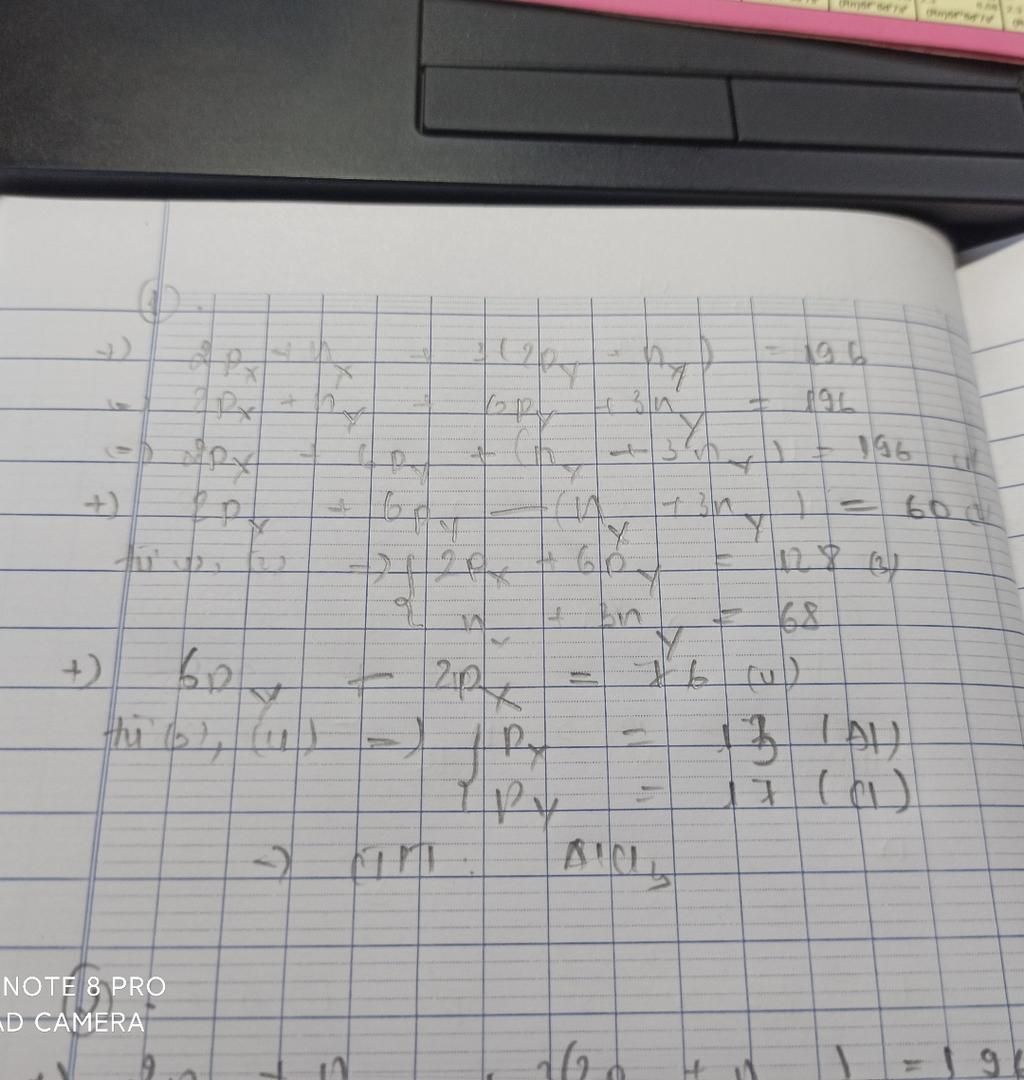 ①.
+) 2p_X + n_X + 3(2p_Y + n_Y) = 196
=) 2p_X + n_X + 6p_Y + 3n_Y = 196
=) 2p_X + 6p_Y + (n_X + 3n_Y) = 196 (1)
+) 2p_X + 6p_Y - (n_X + 3n_Y) = 60 (2)
từ (1), (2) → { 2p_X + 6p_Y = 128 (3)
{ n_X + 3n_Y = 68
+) 6p_Y - 2p_X = 76 (4)
từ (3), (4) =) { p_X = 13 (Al)
{ p_Y = 17 (Cl)
→ CTPT : AlCl_3
NOTE 8 PRO
AD CAMERA
= 196